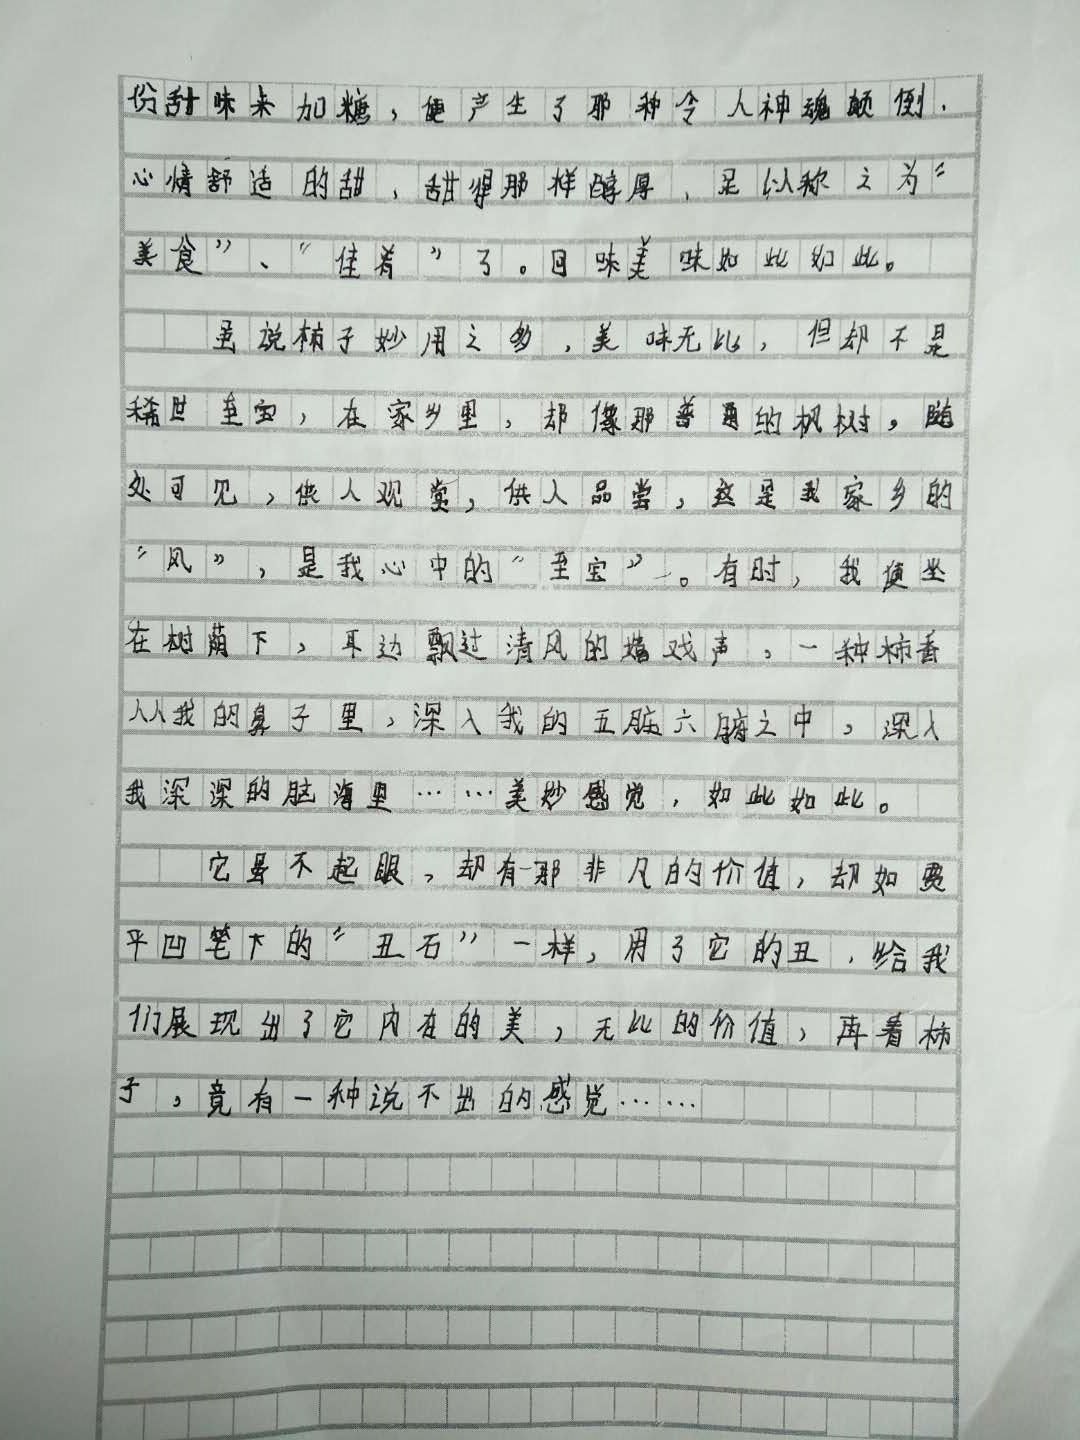 份甜味来加糖，便产生了那种令人神魂颠倒、
心情舒适的甜，甜得那样醇厚，足以称之为“
美食”、“佳肴”了。回味美味如此如此。
虽说柿子妙用之多，美味无比，但却不是
稀世至宝，在家乡里，却像那普通的枫树，随
处可见，供人观赏，供人品尝，这是我家乡的
“风”，是我心中的“至宝”。有时，我便坐
在树荫下，耳边飘过清风的嬉戏声，一种柿香
入我的鼻子里，深入我的五脏六腑之中，深入
我深深的脑海里……美妙感觉，如此如此。
它虽不起眼，却有那非凡的价值，却如贾
平凹笔下的“丑石”一样，用了它的丑，给我
们展现出了它内在的美，无比的价值，再看柿
子，竟有一种说不出的感觉……